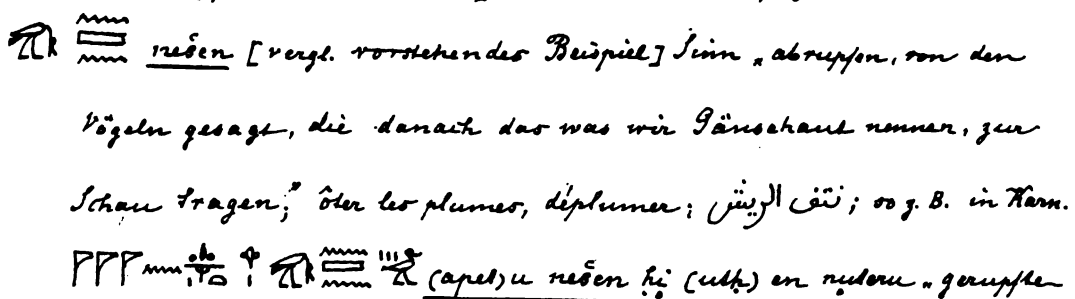 nešen [vergl. vorstehendes Beispiel] Sinn „abrupfen, von den
Vögeln gesagt, die danach das was wir Gänsehaut nennen, zur
Schau tragen;” ôter les plumes, déplumer; نتف الريش; so z. B. in Karn.
(apel)u nešen ḥi (utḥ) en nuteru „gerupften